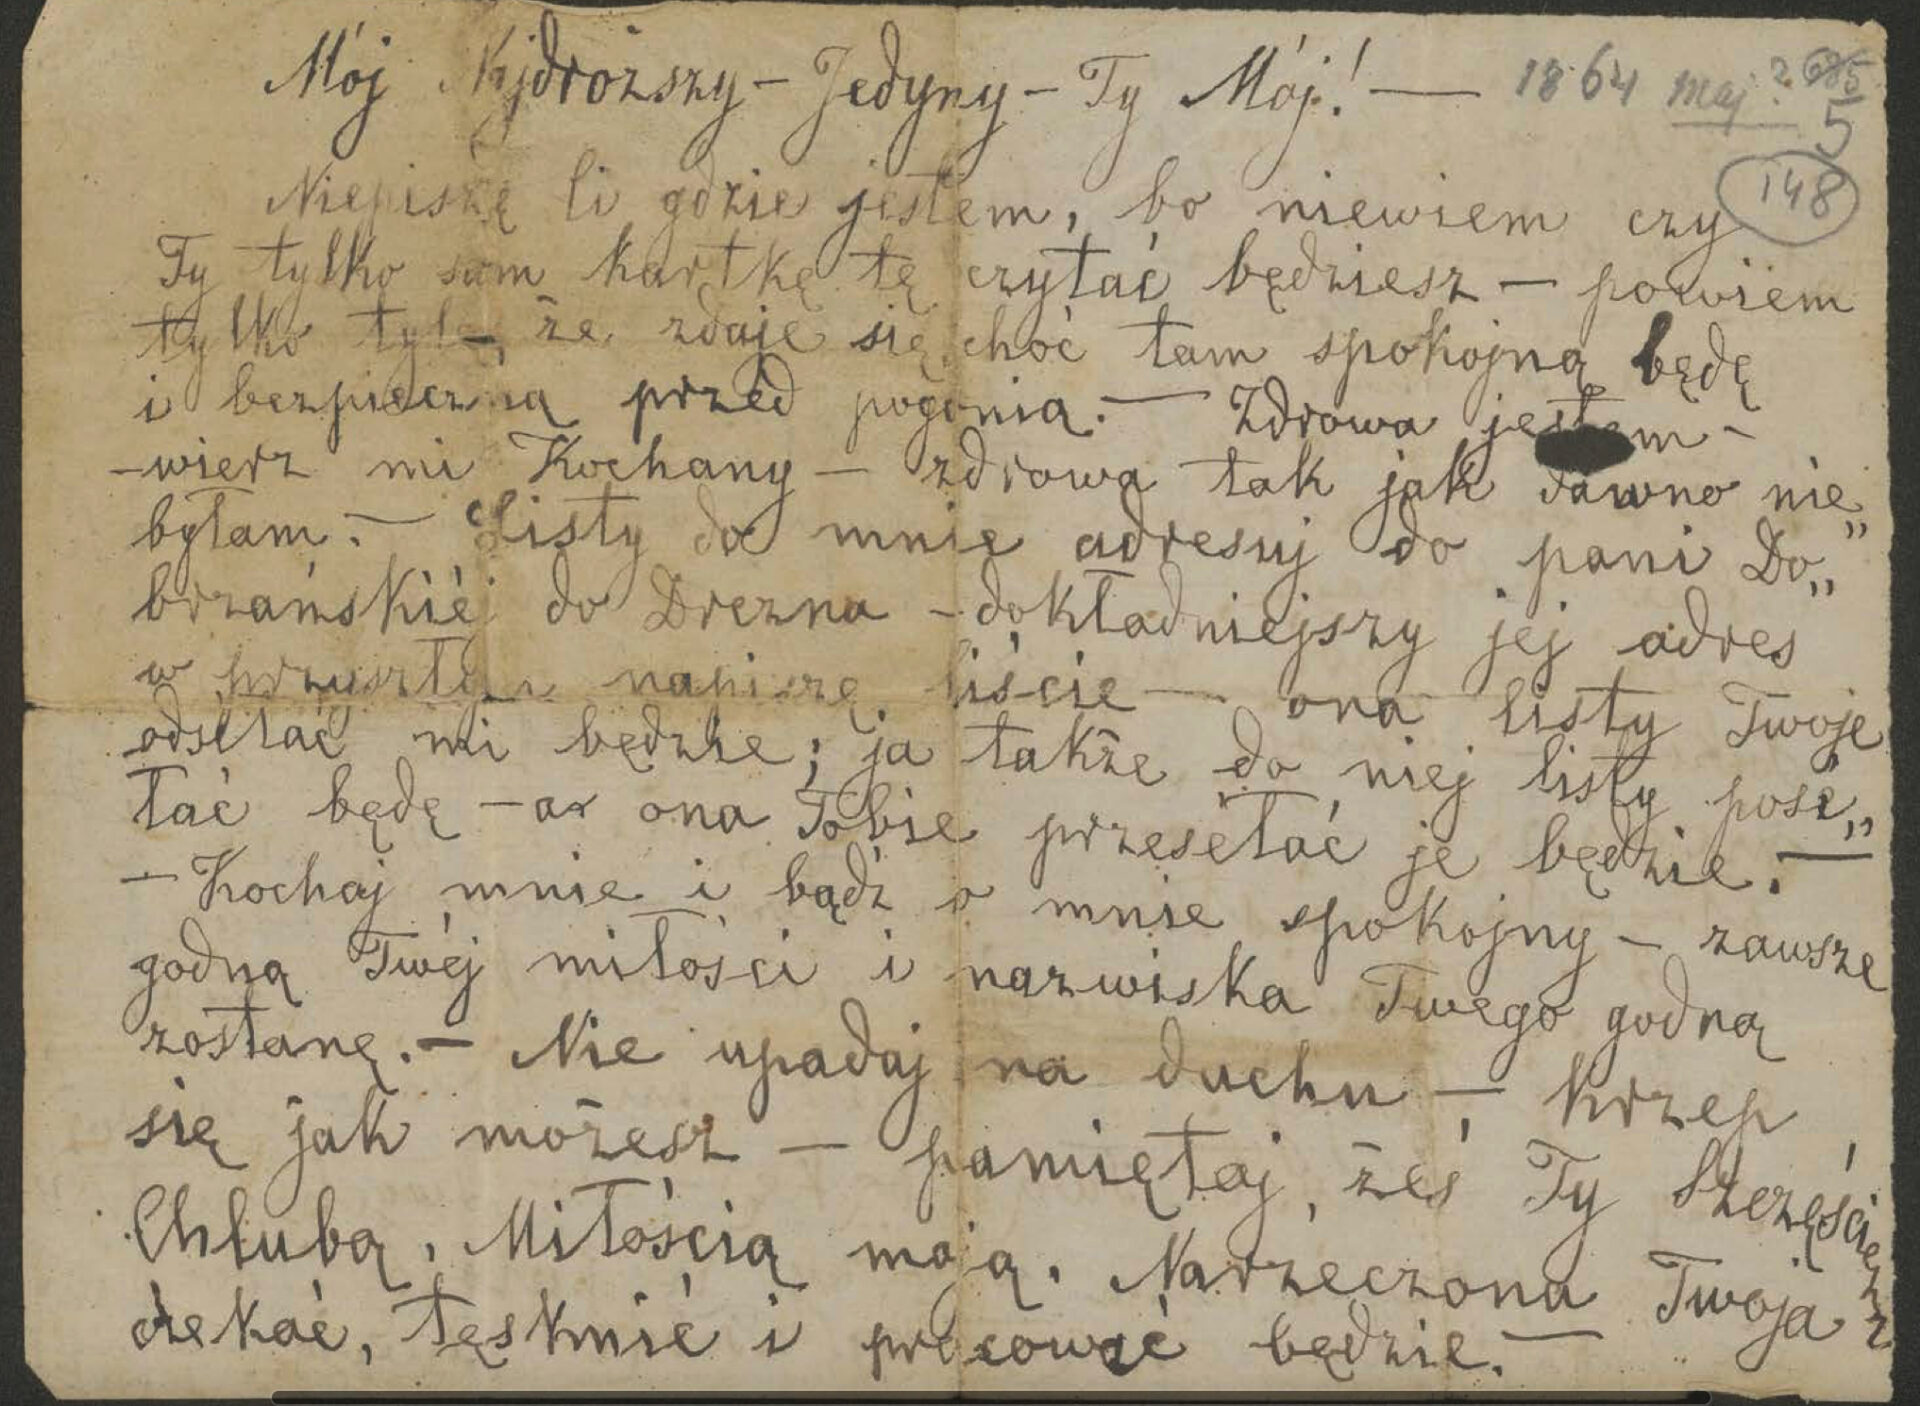 Mój Najdroższy – Jedyny – Ty Mój! — 1864 maj? 685
5
148
Niepiszę Ci gdzie jestem, bo niewiem czy
Ty tylko sam kartkę tę czytać będziesz – powiem
tylko tyle, że zdaje się choć tam spokojną będę
i bezpieczną przed pogonią. — Zdrowa jestem –
– wierz mi Kochany – zdrowa tak jak dawno nie
byłam. — Listy do mnie adresuj do pani Do„
brzańskiéj do Drezna – dokładniejszy jej adres
w przyszłym napiszę liście — ona listy Twoje
odsełać mi będzie; ja także do niej listy pose„
łać będę – a ona Tobie przesełać je będzie. —
– Kochaj mnie i bądź o mnie spokojny – zawsze
godną Twéj miłości i nazwiska Twego godną
zostanę. – Nie upadaj na duchu – krzep
się jak możesz – pamiętaj, żeś Ty Szczęściem
Chlubą, Miłością moją. Narzeczona Twoja
czekać, tęsknić i pracować będzie. —